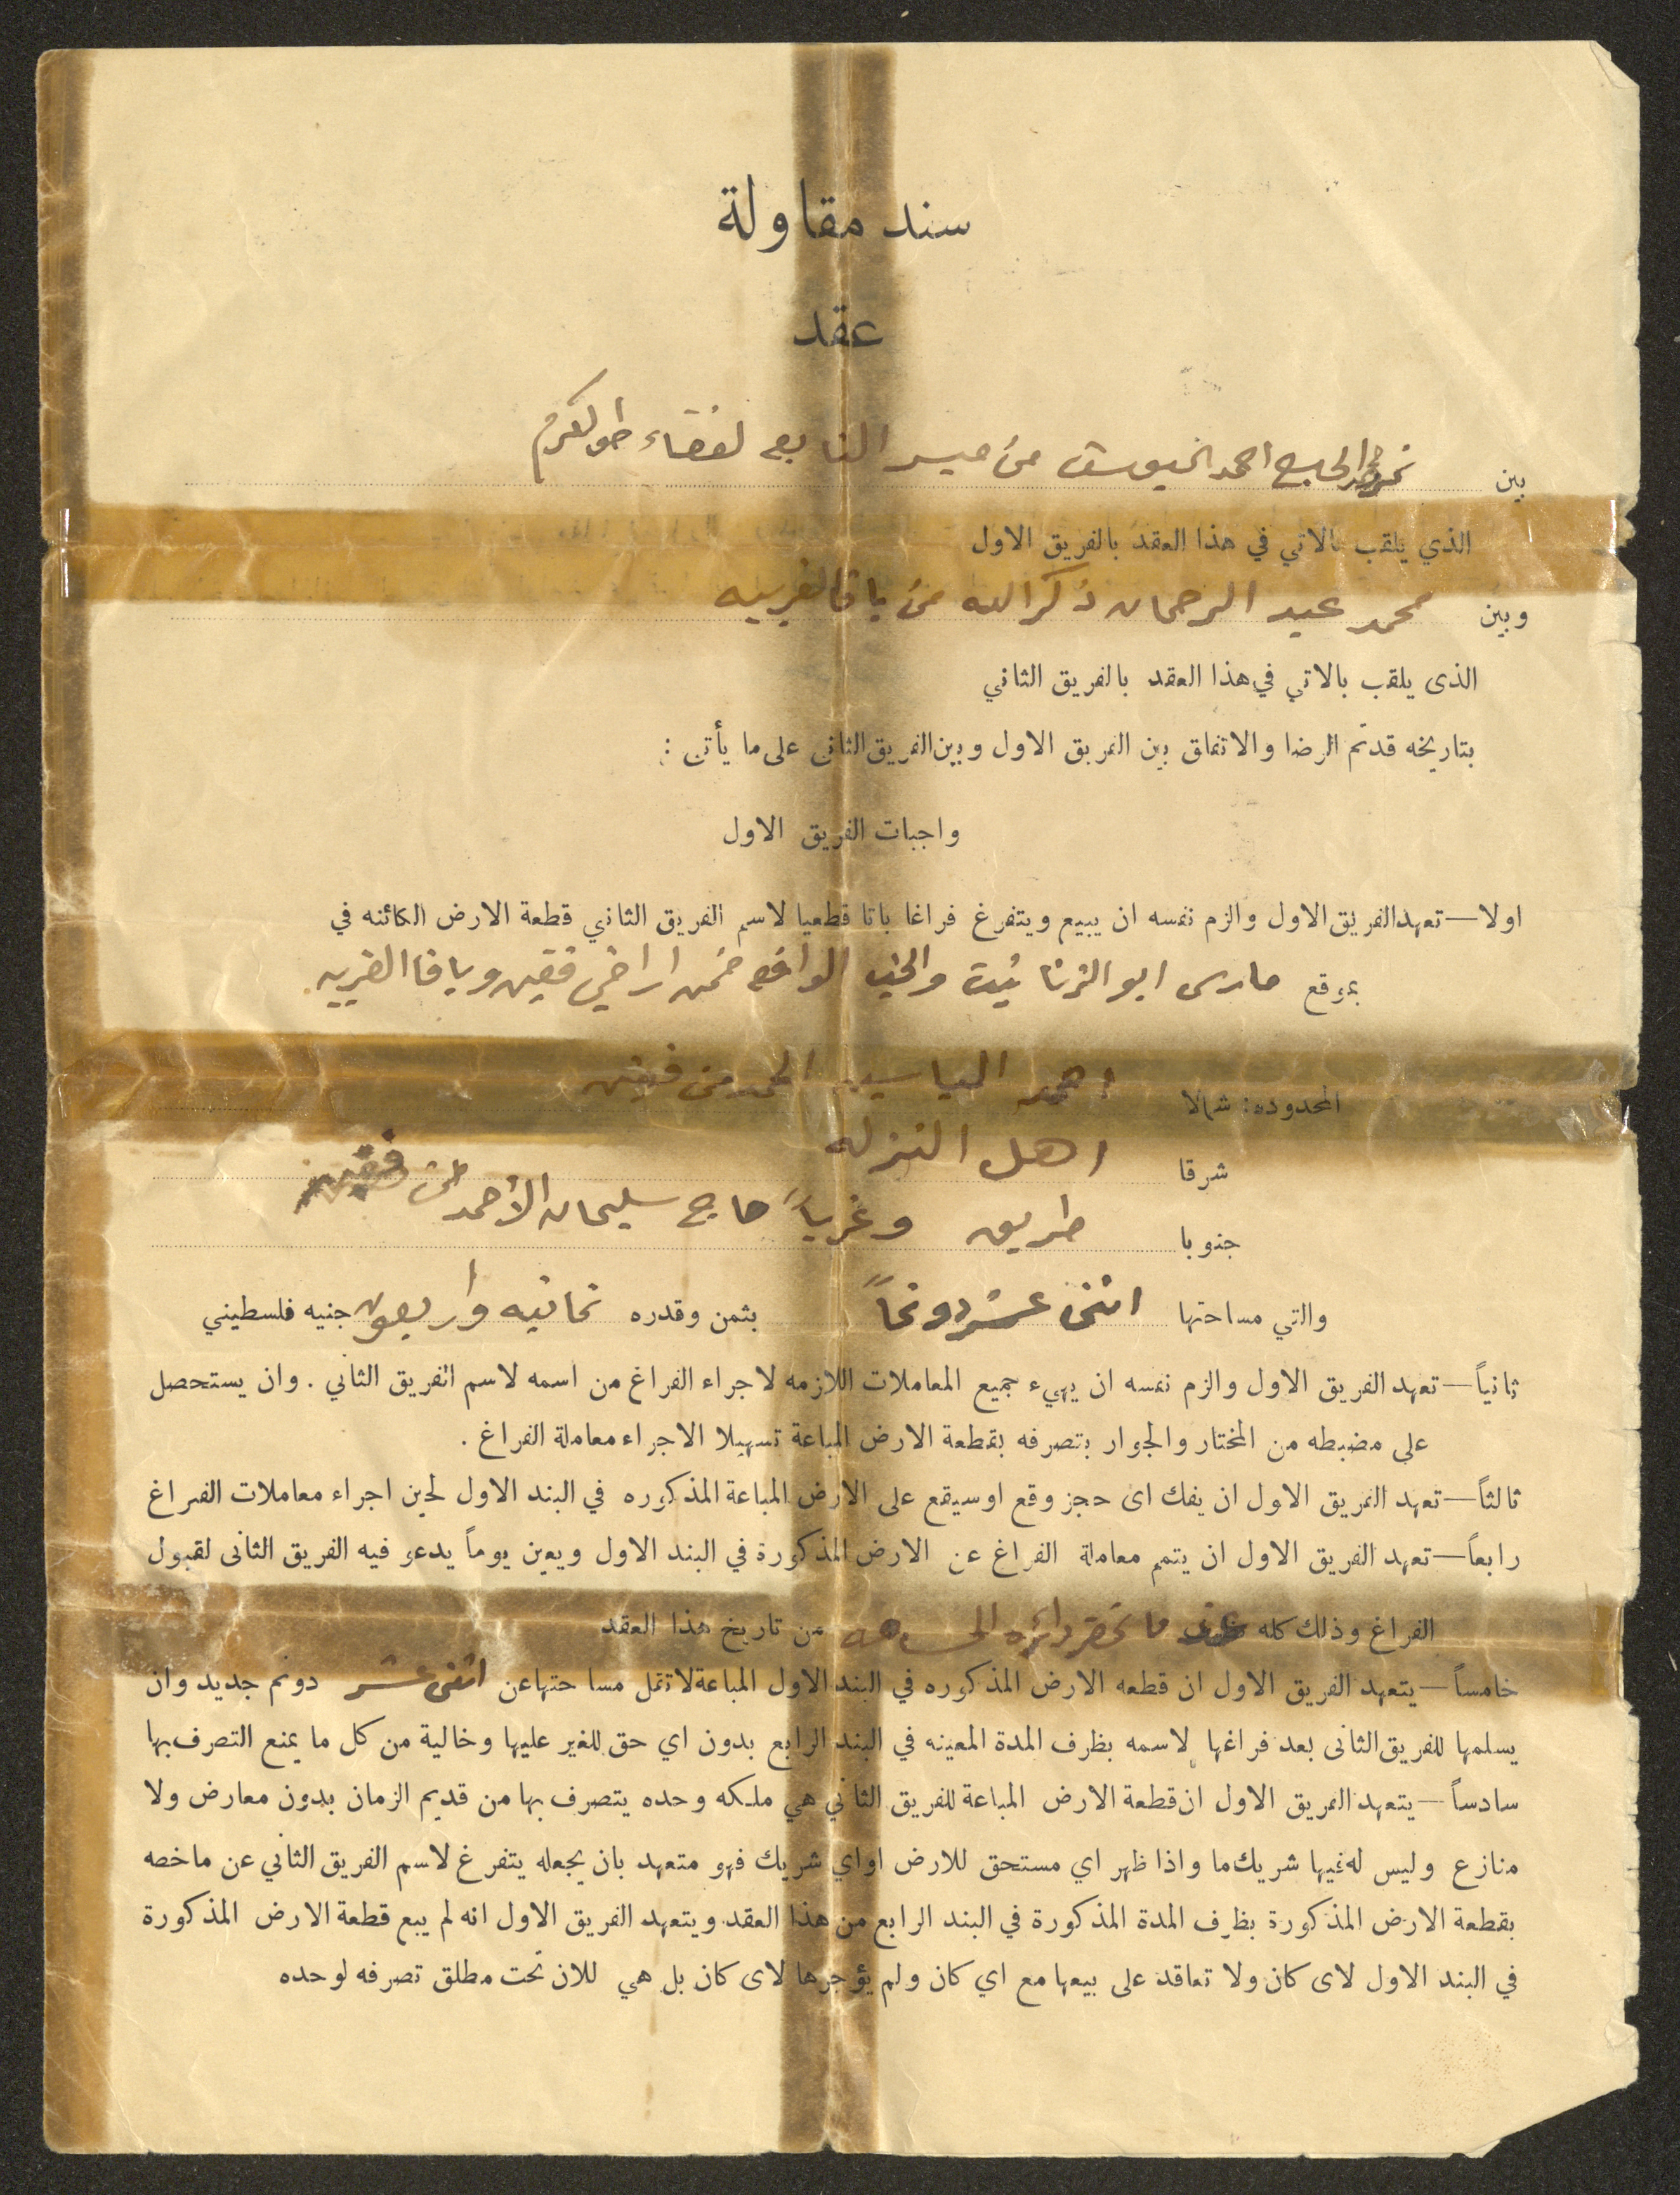 سند مقاولة
عقد
بين الحاج احمد من ميسر التابعه لقضاء طولكرم
الذي يلقب بالاتي في هذا العقد بالفريق الاول
وبين محمد عبد الرحمان ذكر الله من باقا الغربيه
الذى يلقب بالاتي في هذا العقد بالفريق الثاني
بتاريخه قدتم الرضا والاتفاق بين الفريق الاول وبين الفريق الثانى على ما يأتى :
واجبات الفريق الاول
اولا — تعهد الفريق الاول والزم نفسه ان يبيع ويتفرغ فراغا باتا قطعيا لاسم الفريق الثاني قطعة الارض الكائنه في
بموقع مارس ابو الواقع ضمن اراضي فقين وباقا الغربيه
المحدوده : شمالا احمد الياسين من فقين
شرقا اهل النزله
جنوبا طريق وغرباً حاج سليمان الأحمد من فقين
والتي مساحتها اثنى عشر دونماً بثمن وقدره ثمانيه واربعون جنيه فلسطيني
ثانياً — تعهد الفريق الاول والزم نفسه ان يهيء جميع المعاملات اللازمه لاجراء الفراغ من اسمه لاسم الفريق الثاني . وان يستحصل
على مضبطه من المختار والجوار بتصرفه بقطعة الارض المباعة تسهيلا الاجراء معاملة الفراغ .
ثالثاً — تعهد الفريق الاول ان يفك اى حجز وقع اوسيقع على الارض المباعة المذكوره في البند الاول لحين اجراء معاملات الفراغ
رابعاً — تعهد الفريق الاول ان يتمم معاملة الفراغ عن الارض المذكورة في البند الاول ويعين يوماً يدعو فيه الفريق الثانى لقبول
الفراغ وذلك كله عند ما تحضر دائره المساحه من تاريخ هذا العقد
خامساً — يتعهد الفريق الاول ان قطعه الارض المذكوره في البند الاول المباعة لا تقل مسا حتها عن اثنى عشر دونم جديد وان
يسلمها للفريق الثانى بعد فراغها لاسمه بظرف المدة المعينه في البند الرابع بدون اي حق للغير عليها وخالية من كل ما يمنع التصرف بها
سادساً — يتعهد الفريق الاول ان قطعة الارض المباعة للفريق الثاني هي ملكه وحده يتصرف بها من قديم الزمان بدون معارض ولا
منازع وليس له فيها شريك ما واذا ظهر اي مستحق للارض اواي شريك فهو متعهد بان يجعله يتفرغ لاسم الفريق الثاني عن ماخصه
بقطعة الارض المذكورة بظرف المدة المذكورة في البند الرابع من هذا العقد ويتعهد الفريق الاول انه لم يبع قطعة الارض المذكورة
في البند الاول لاى كان ولا تعاقد على بيعها مع اي كان ولم يؤجرها لاى كان بل هي للان تحت مطلق تصرفه لوحده